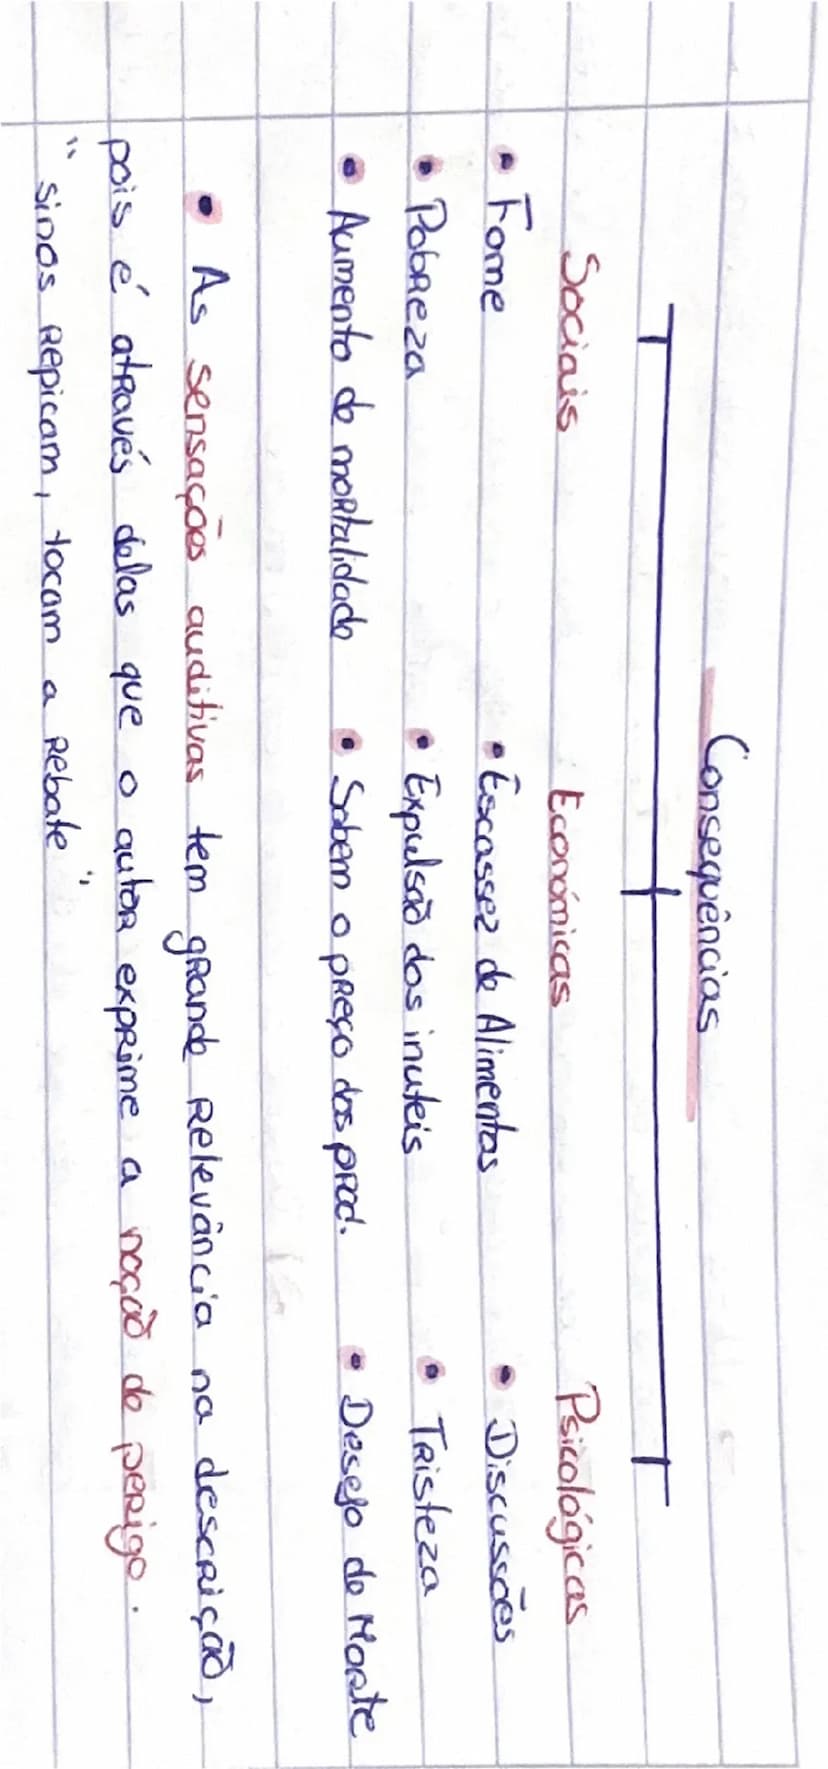 Consequências
Sociais Económicas Psicológicas
• Fome • Escassez de Alimentos • Discussões
• Pobreza • Expulsão dos inuteis • Tristeza
• Aumento de mortalidade • Sobem o preço dos prod. • Desejo de Morte
• As sensações auditivas tem grande relevância na descrição,
pois é através delas que o autor exprime a noção de perigo.
"sinos repicam, tocam a rebate"